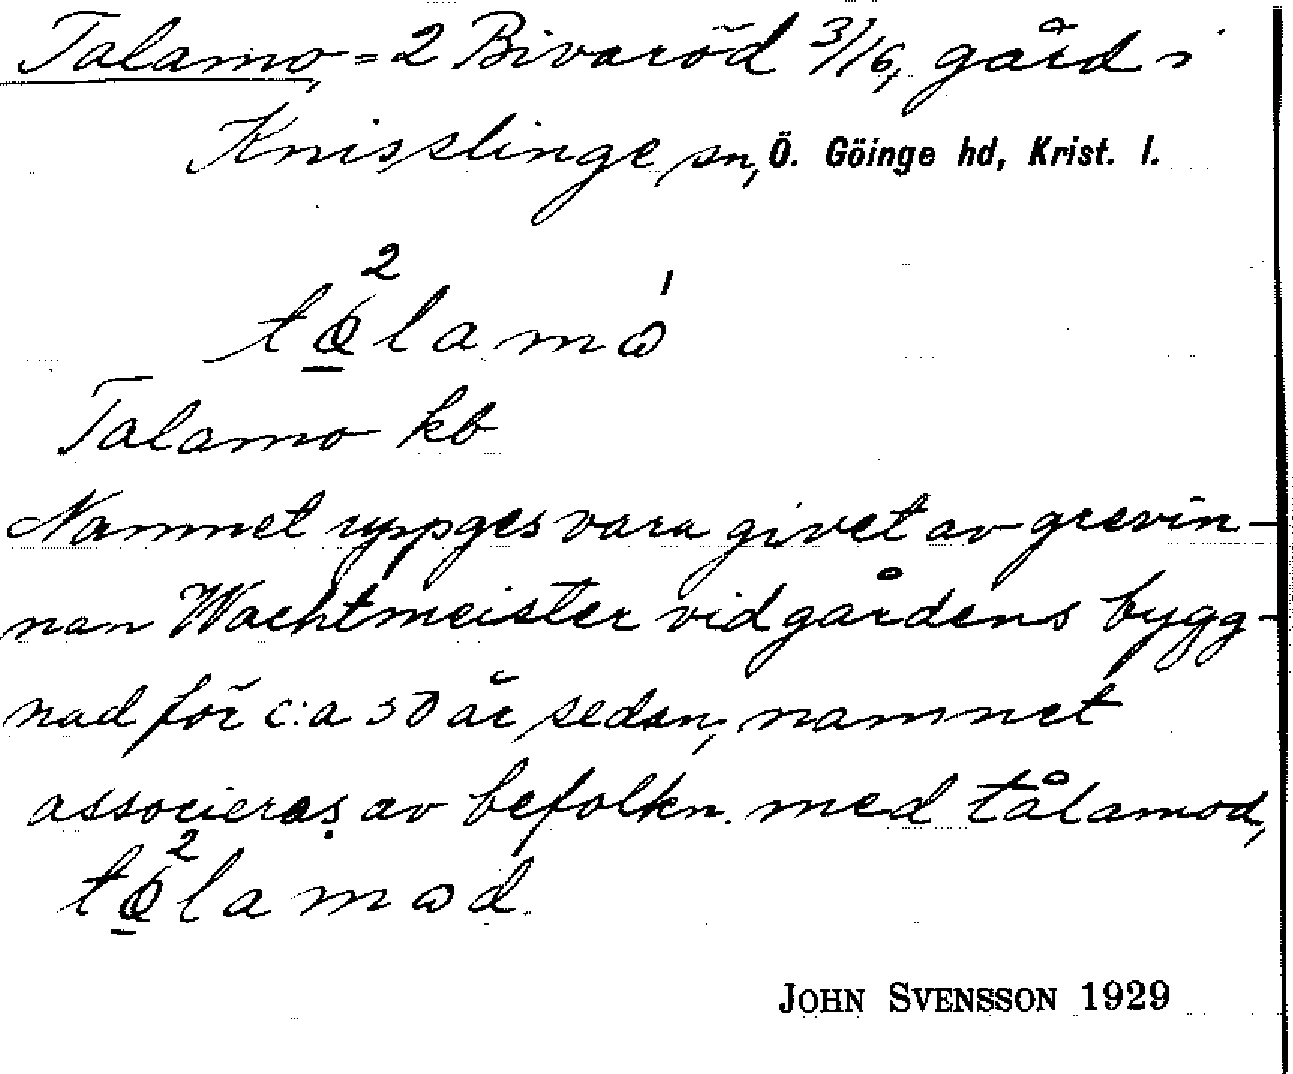 Talamo, = 2 Bivaröd 3/16, gård i
Knisslinge sn, Ö. Göinge hd, Krist. l.
Talamo kb
Namnet uppges vara givet av grevin-
nan Wachtmeister vid gårdens bygg-
nad för c:a 50 år sedan, namnet
associeras av befolkn. med tålamod,
JOHN SVENSSON 1929